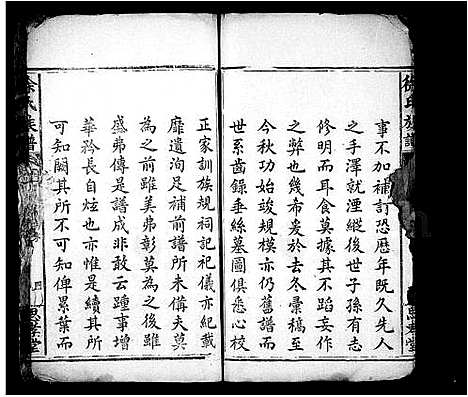 事不加補訂恐歷年既久先人
之手澤就湮縱後世子孫有志
修明而耳食莫據其不蹈妄作
之弊也幾希爰於去冬彙稿
今秋功始竣規模亦仍舊譜而
世系齒錄垂絲墓圖俱悉心校
正家訓族規祠記祀儀亦紀載
靡遺洵足補前譜所未備夫莫
為之前雖美弗彰莫為之後雖
盛弗傳是譜成非敢云踵事增
華矜長自炫也亦惟是續其所
可知闕其所不可知俾累葉而
徐氏族譜
思孝堂
余氏族譜
四
思孝堂